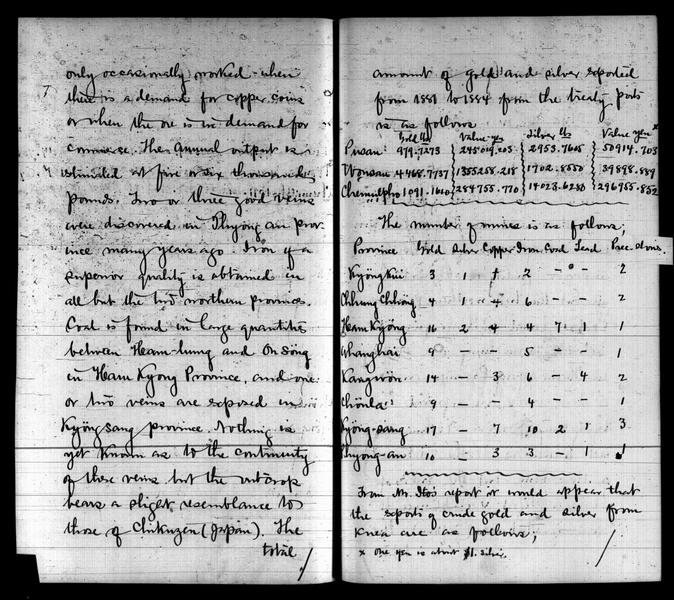 only occasionally worked when
there is a demand for copper coins
or when the ore is in demand for
commerce. The annual output is
estimated at five or six thousand
pounds. Two or three good veins
were discovered in Phyöng an prov
ince many years ago. Iron of a
superior quality is obtained in
all but the two northern provinces.
Coal is found in large quantities
between Ham-hung and On Söng
in Ham Kyöng Province, and one
or two veins are exposed in
Kyöng sang province. Nothing is
yet known as to the continuity
of these veins but the outcrop
bears a slight resemblance to
those of Chikuzen (Japan). The
total
amount of gold and silver exported
from 1881 to 1884 from the treaty ports
is as follows
Gold lbs Value yen Silver lbs Value yen x
Pusan 979.7273 245019.205 2953.7605 50914.703
Wonsan 4468.7737 1355258.218 1702.8550 39898.889
Chemulpho 1091.1610 284755.770 14023.6280 296955.832
The number of mines is as follows;
Province Gold Silver Copper Iron Coal Lead Prec. stones
Kyöng Kui 3 1 1 2 - - 2
Chhung Chhöng 4 1 4 6 - - 2
Ham Kyöng 16 2 4 4 7 1 1
Whanghai 9 - - 5 - - 1
Kangwön 14 - 3 6 - 4 2
Chönla 9 - - 4 - - 1
Kyöng-sang 17 - 7 10 2 1 3
Phyong-an 10 - 3 3 - 1 1
From Mr. Ito's report it would appear that
the exports of crude gold and silver from
Korea are as follows;
x one yen is about $1. silver.